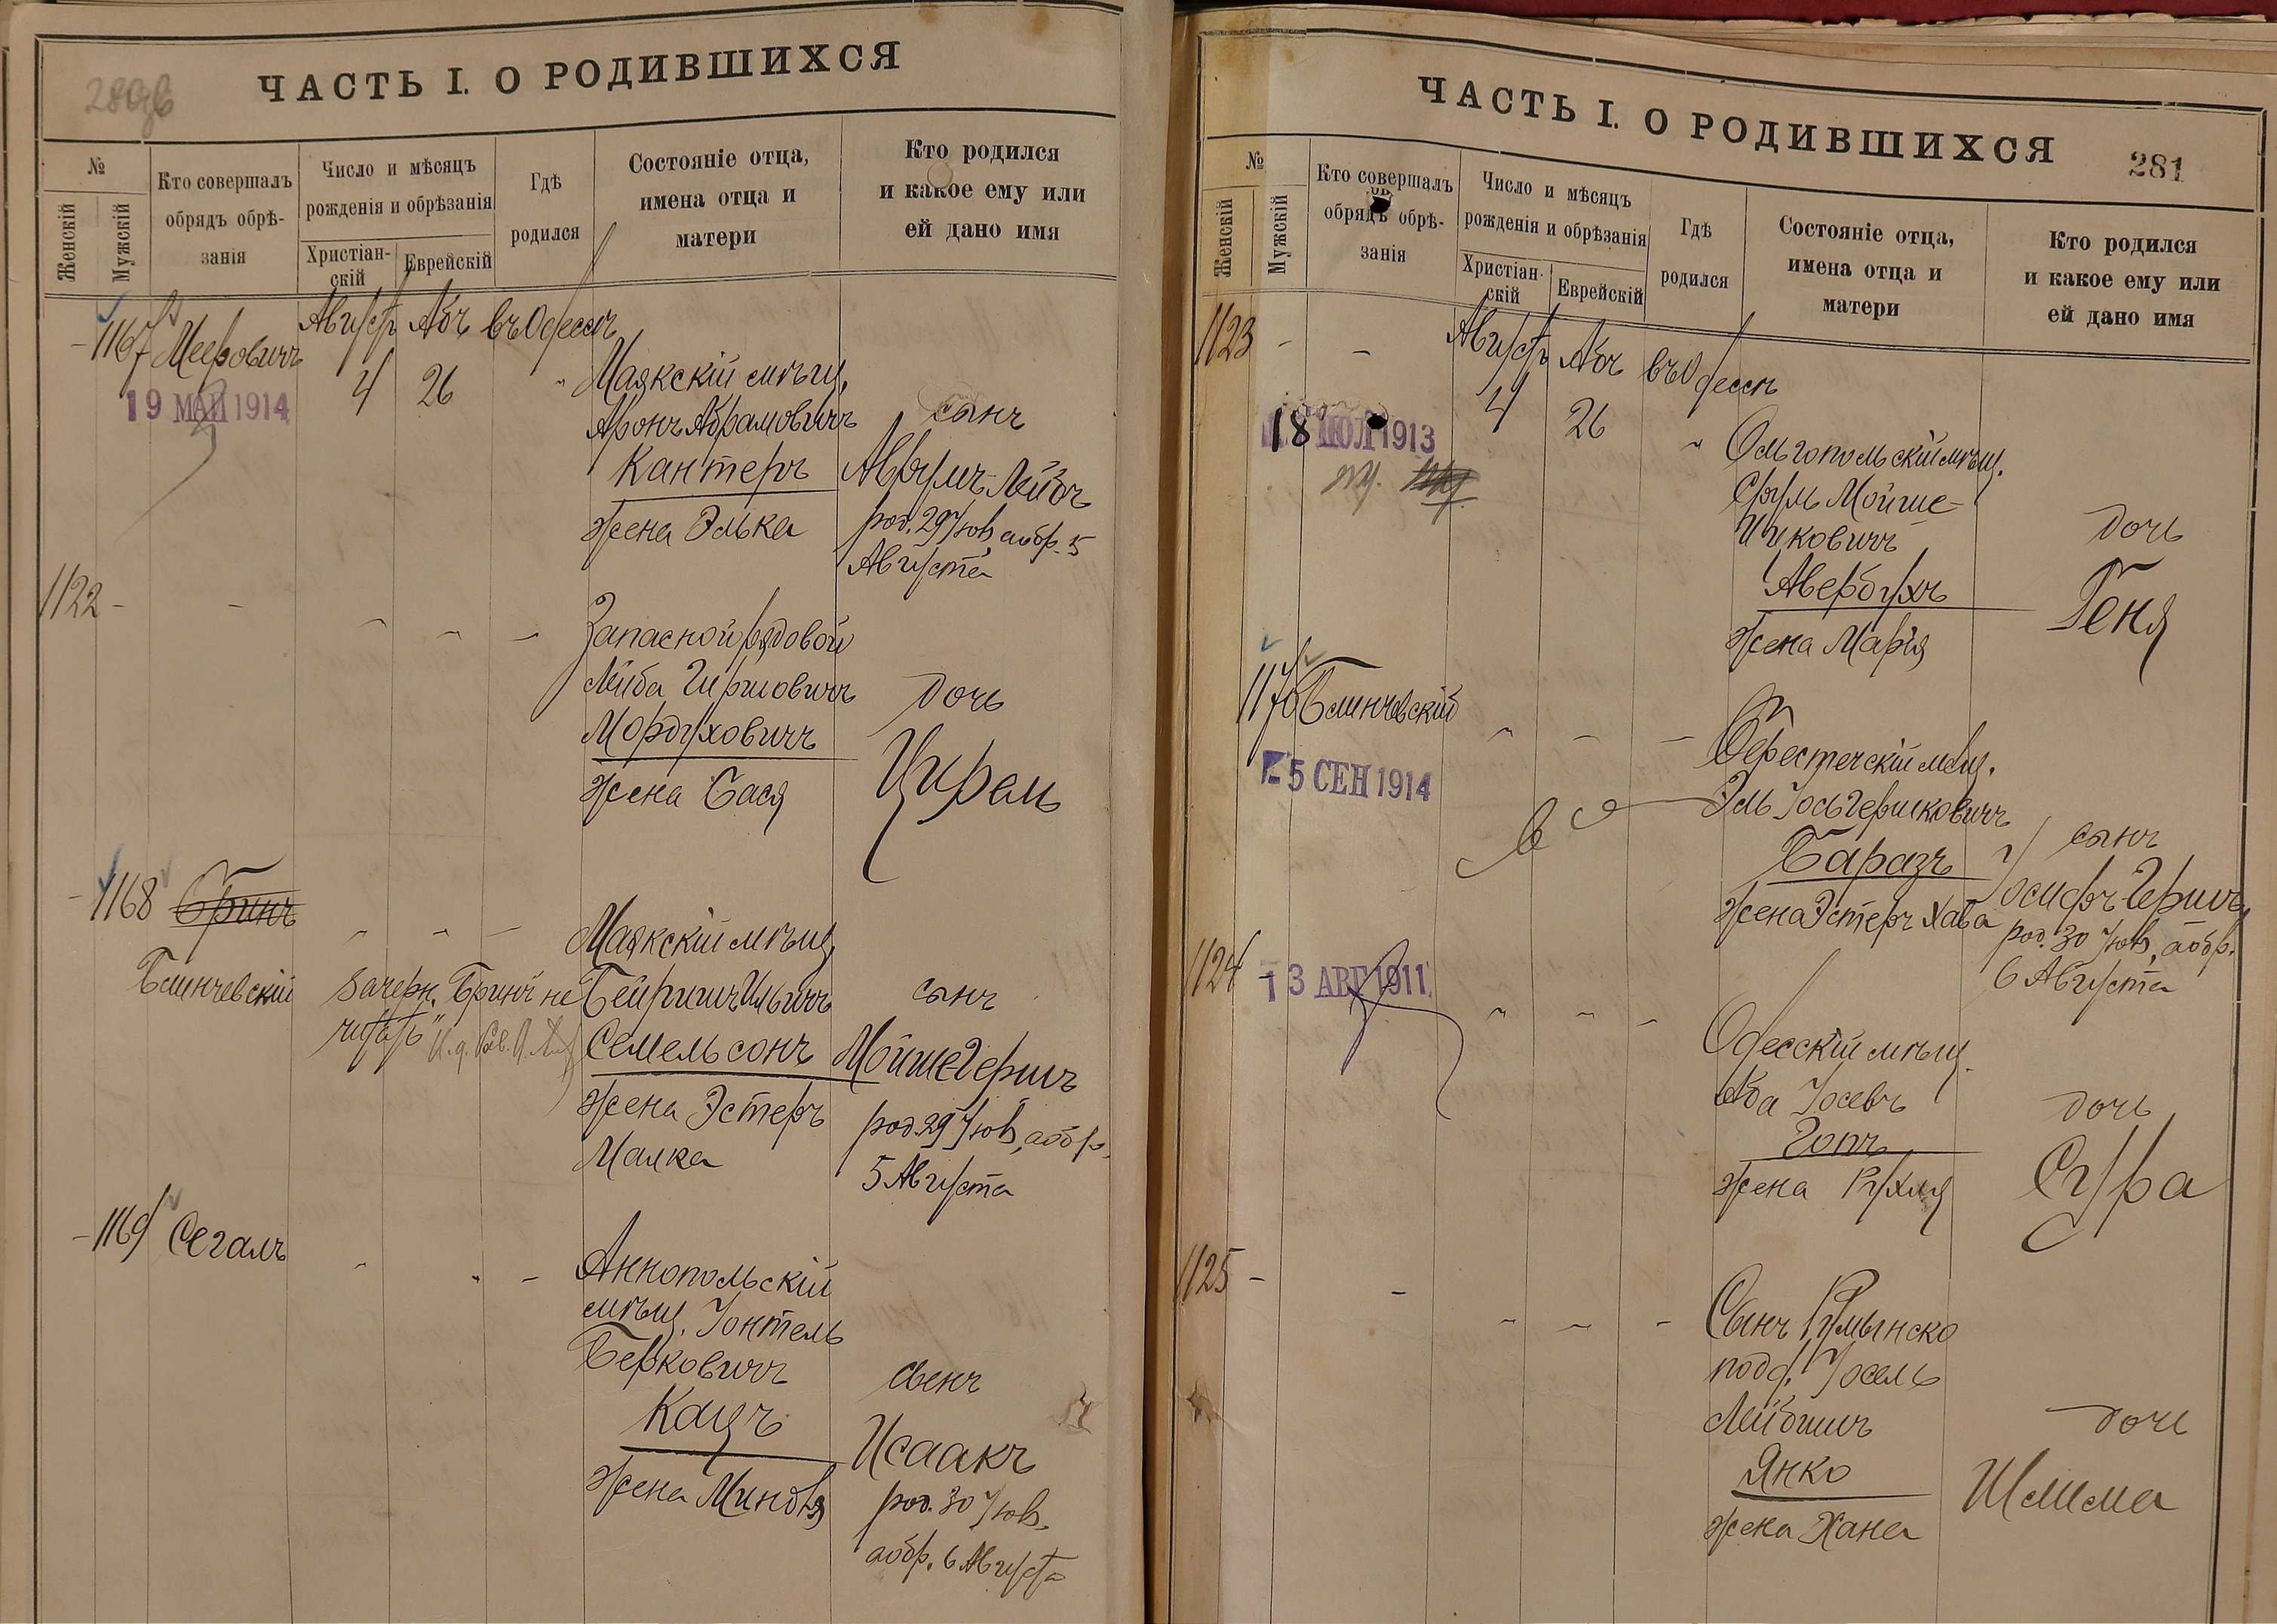 280об
ЧАСТЬ I. О РОДИВШИХСЯ
№
Женскій
Мужскій
Кто совершалъ
обрядъ обрѣ-
занія
Число и мѣсяцъ
рожденія и обрѣзанія
Христіан-
скій
Еврейскій
Гдѣ
родился
Состояніе отца,
имена отца и
матери
Кто родился
и какое ему или
ей дано имя
1167 Меировичъ
Августъ Абъ въ Одессѣ
4 26 "
19 МАЙ 1914
Маякскій мѣщ.
Аронъ Абрамовичъ
Кантеръ
жена Элька
сынъ
Аврумъ Лейбъ
род. 29 Іюля, а обр. 5
Августа
1122 - -
Запасной рядовой
Лейба Гиршовичъ
Мордуховичъ
жена Бася
дочь
Цирель
1168 Бринъ
Блинчевскій
Зачеркн. "Бринъ" не
читать"
Маякскій мѣщ.
Бейришъ Ильичъ
Семельсонъ
жена Эстеръ
Малка
сынъ
Мойше Гершъ
род. 29 Іюля, а обр.
5 Августа
1169 Сегалъ
Аннопольскій
мѣщ. Іонтель
Берковичъ
Кацъ
жена Миндля
сынъ
Исаакъ
род. 30 Іюля,
а обр. 6 Августа
ЧАСТЬ I. О РОДИВШИХСЯ
281
№
Женскій
Мужскій
Кто совершалъ
обрядъ обрѣ-
занія
Число и мѣсяцъ
рожденія и обрѣзанія
Христіан-
скій
Еврейскій
Гдѣ
родился
Состояніе отца,
имена отца и
матери
Кто родился
и какое ему или
ей дано имя
1123 - -
Августъ Абъ въ Одессѣ
4 26 "
18 ИЮЛ 1913
Ольгопольскій мѣщ.
Сруль Мойше-
Ицковичъ
Авербухъ
жена Марія
дочь
Геня
1170 Блинчевскій
- 5 СЕН 1914
Берестечскій мѣщ.
Эль Іось Гершковичъ
Баразъ
жена Эстеръ Хава
сынъ
Іосифъ Гершъ,
род. 30 Іюля, а обр.
6 Августа
1124
13 АВГ 1911
Одесскій мѣщ.
Аба Іосевъ
Гопъ
жена Рухля
дочь
Сура
1125 - -
Сынъ Румынско
подд. Іосель
Лейбишъ
Янко
жена Хана
дочь